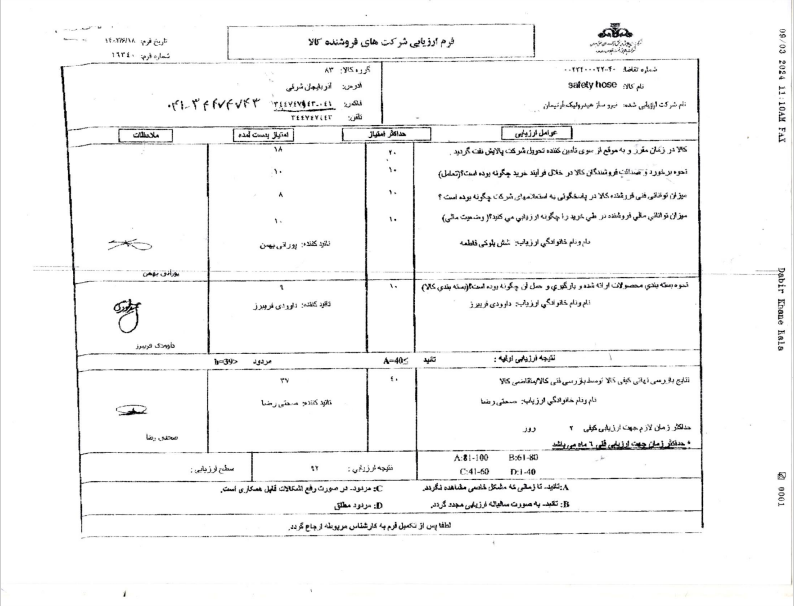 فرم ارزیابی شرکت های فروشنده کالا
شماره فرم: ۱۶۳۴۰
نام کالا: safety hose
نام شرکت ارزیابی شده: نیرو ساز هیدرولیک آذربایجان
گروه کالا: ۸۳
آدرس: آذربایجان شرقی
فاکس:
تلفن:
عوامل ارزیابی حداکثر امتیاز امتیاز بدست آمده ملاحظات
کالا در زمان مقرر و به موقع از سوی تأمین کننده تحویل شرکت پالایش نفت گردید. ۲۰ ۱۸
نحوه برخورد و صداقت فروشندگان کالا در خلال فرآیند خرید چگونه بوده است؟(تعامل) ۱۰ ۱۰
میزان توانائی فنی فروشنده کالا در پاسخگوئی به استعلامهای شرکت چگونه بوده است ؟ ۱۰ ۸
میزان توانائی مالی فروشنده در طی خرید را چگونه ارزیابی می کنید؟( وضعیت مالی) ۱۰ ۱۰
نام ونام خانوادگی ارزیاب: شش بلوکی فاطمه تائید کننده: پورانی بهمن
پورانی بهمن
نحوه بسته بندی محصولات ارائه شده و بارگیری و حمل آن چگونه بوده است؟(بسته بندی کالا) ۱۰ ۹
نام ونام خانوادگی ارزیاب: داوودی فریبرز تائید کننده: داوودی فریبرز
داوودی فریبرز
نتیجه ارزیابی اولیه : تائید A=40≤ مردود b=39>
نتایج بازرسی نهائی کیفی کالا توسط بازرسی فنی کالا/متقاضی کالا ۴۰ ۳۷
نام ونام خانوادگی ارزیاب: صحتی رضا تائید کننده: صحتی رضا
صحتی رضا
حداکثر زمان لازم جهت ارزیابی کیفی ۲ روز
* حداکثر زمان جهت ارزیابی فنی ۶ ماه می باشد
A:81-100 B:61-80
C:41-60 D:1-40
نتیجه ارزیابی : ۹۲ سطح ارزیابی :
A: تائید، تا زمانی که مشکل خاصی مشاهده نگردد. C: مردود، در صورت رفع اشکالات قابل همکاری است.
B: تائید، به صورت سالیانه ارزیابی مجدد گردد. D: مردود مطلق
لطفا پس از تکمیل فرم به کارشناس مربوطه ارجاع گردد.
09/03 2024 11:10AM FAX
Dabir Khane Kala
0001